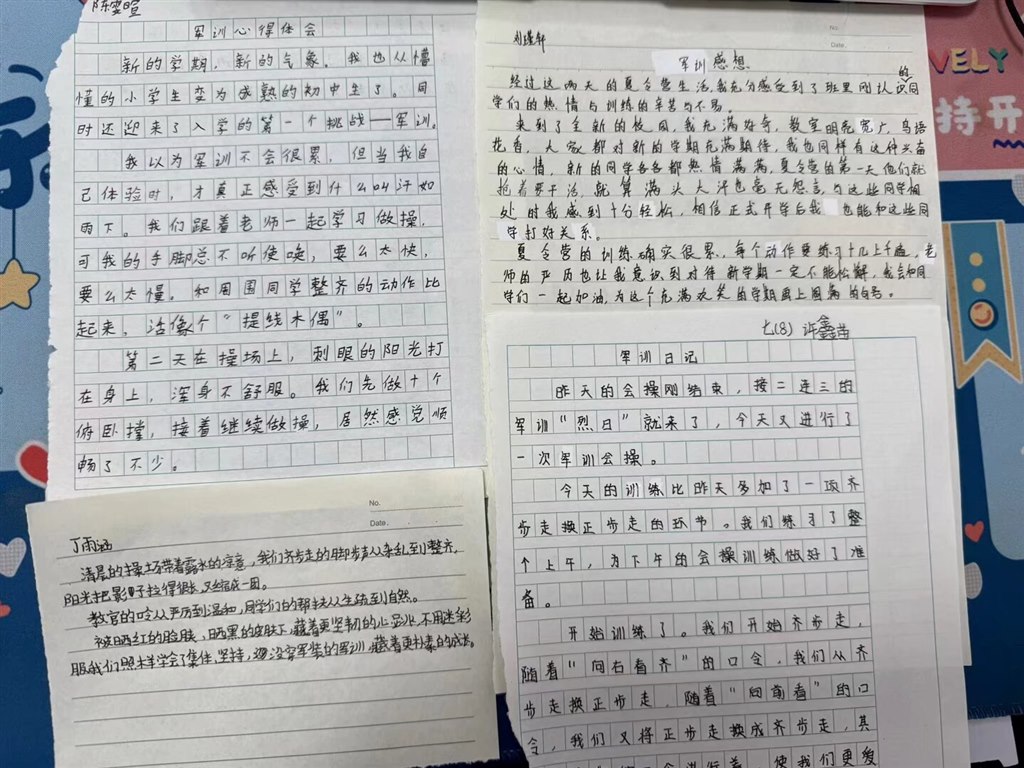 陈雯暄
军训心得体会
新的学期，新的气象。我也从懵
懂的小学生变为成熟的初中生了。同
时还迎来了入学的第一个挑战——军训。
我以为军训不会很累，但当我自
己体验时，才真正感受到什么叫汗如
雨下。我们跟着老师一起学习做操，
可我的手脚总不听使唤，要么太快，
要么太慢。和周围同学整齐的动作比
起来，活像个“提线木偶”。
第二天在操场上，刺眼的阳光打
在身上，浑身不舒服。我们先做十个
俯卧撑，接着继续做操，居然感觉顺
畅了不少。
No.
Date.
丁雨涵
清晨的操场带着露水的凉意，我们齐步走的脚步声从杂乱到整齐，
阳光把影子拉得很长，又缩成一团。
教官的口令从严厉到温和，同学们的帮扶从生疏到自然。
被晒红的脸颊，晒黑的皮肤下，藏着更坚韧的心。不用迷彩
服，我们照样学会了集体，坚持，没穿军装的军训，藏着更朴素的成长。
No.
Date.
刘瑾轩
军训感想
经过这两天的夏令营生活，我充分感受到了班里刚认识的同
学们的热情与训练的辛苦与不易。
来到了全新的校园，我充满好奇，教室明亮宽广，鸟语
花香，大家都对新的学期充满期待，我也同样有这种兴奋
的心情，新的同学各各都热情满满，夏令营的第一天他们就
抢着要干活，就算满头大汗也毫无怨言，与这些同学相
处时我感到十分轻松，相信正式开学后我也能和这些同
学打好关系。
夏令营的训练确实很累，每个动作要练习十几上千遍，老
师的严厉也让我意识到对待新学期一定不能松懈，我会和同
学们一起加油，为这个充满欢笑的学期画上圆满的句号。
VELY
持开
七(8) 许鑫
军训日记
昨天的会操刚结束，接二连三的
军训“烈日”就来了，今天又进行了
一次军训会操。
今天的训练比昨天多加了一项齐
步走换正步走的环节。我们练习了整
个上午，为下午的会操训练做好了准
备。
开始训练了。我们开始齐步走，
随着“向右看齐”的口令，我们从齐
步走换正步走，随着“向前看”的口
令，我们又将正步走换成齐步走，其
使我们更爱